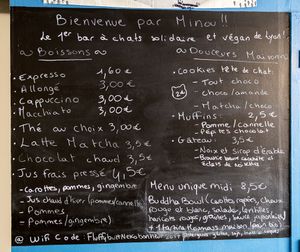 Bienvenue par Minou !!
Le 1er bar à chats solidaire et végan de Lyon !
Boissons
Espresso 1,60 €
Allongé 3,00 €
Cappuccino 3,00 €
Macchiato 3,00 €
Thé au choix 3,00€
Latte Matcha 3,5€
Chocolat chaud 3,5€
Jus frais pressé 4,5€
- Carottes, pommes, gingembre
- Jus chaud d'hiver (pomme/cannelle)
- Pommes
- Pommes/gingembre
Douceurs Maison
Cookies tête de chat
- Tout choco
- Choco/amande
- Matcha/choco
Muffins: 2,5€
- Pomme/cannelle
- Pépites chocolat
Gâteau: 3,5€
- Noix et Sirop d'érable
- Brownie
Menu unique midi 8,5€
Buddha Bowl (carottes rapées, choux
rouge et blanc, salade, lentilles,
haricots rouges, graines
Houmous maison, pour bio)
@ Wifi Code: